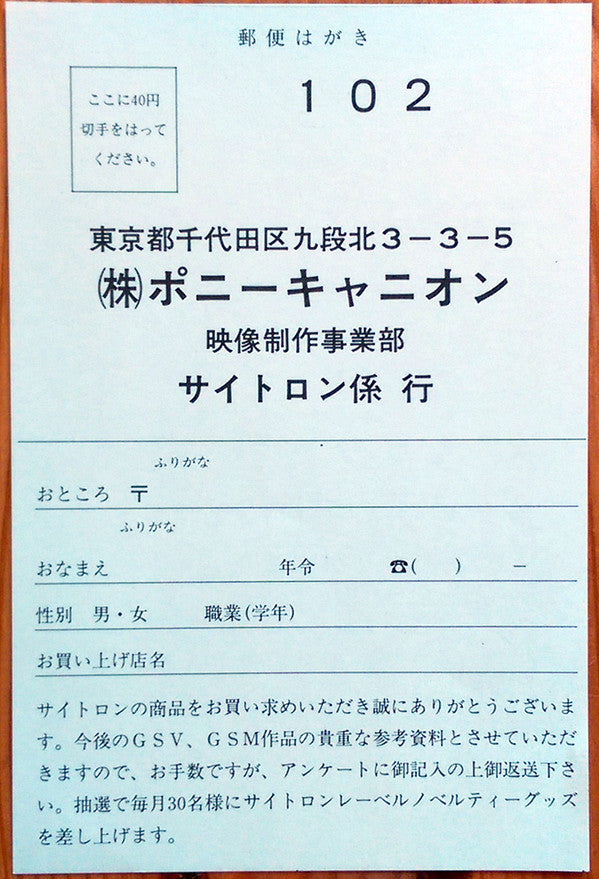 郵便はがき
ここに40円
切手をはって
ください。
102
東京都千代田区九段北3－3－5
㈱ポニーキャニオン
映像制作事業部
サイトロン係 行
ふりがな
おところ 〒
ふりがな
おなまえ 年令 ☎( ) －
性別 男・女 職業(学年)
お買い上げ店名
サイトロンの商品をお買い求めいただき誠にありがとうございま
す。今後のGSV、GSM作品の貴重な参考資料とさせていただ
きますので、お手数ですが、アンケートに御記入の上御返送下さ
い。抽選で毎月30名様にサイトロンレーベルノベルティーグッズ
を差し上げます。